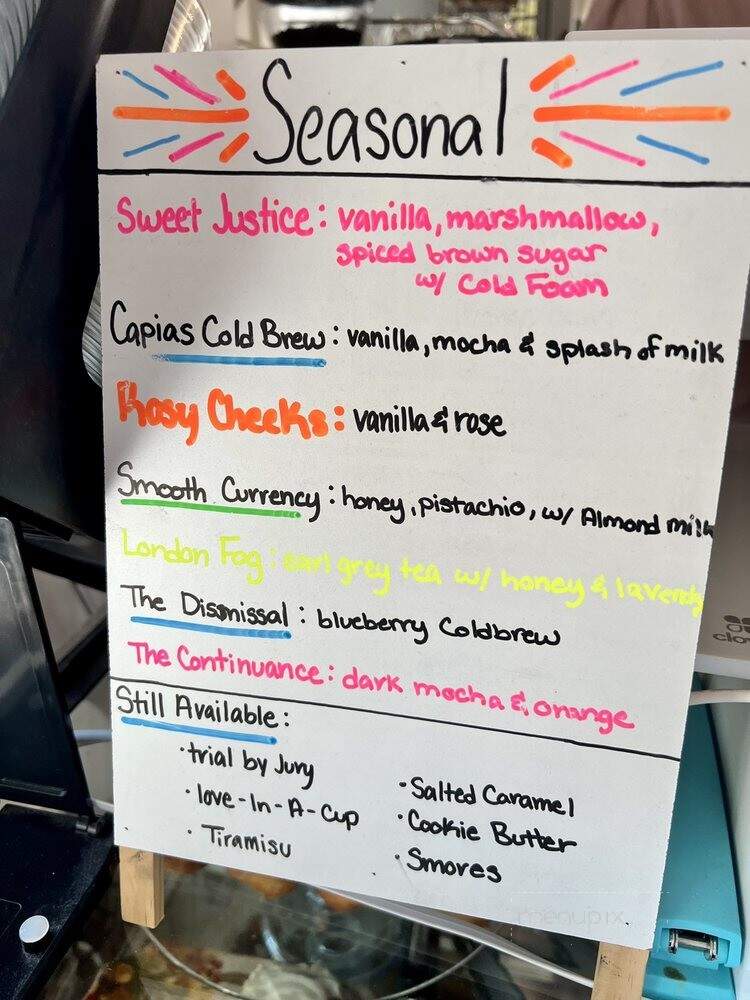 Seasonal
Sweet Justice: vanilla, marshmallow,
spiced brown sugar
w/ Cold Foam
Capias Cold Brew: vanilla, mocha & splash of milk
Rosy Cheeks: vanilla & rose
Smooth Currency: honey, pistachio, w/ Almond milk
London Fog: earl grey tea w/ honey & lavender
The Dismissal: blueberry Coldbrew
The Continuance: dark mocha & orange
Still Available:
· trial by Jury
· love-In-A-Cup
· Tiramisu
· Salted Caramel
· Cookie Butter
· Smores
menupix